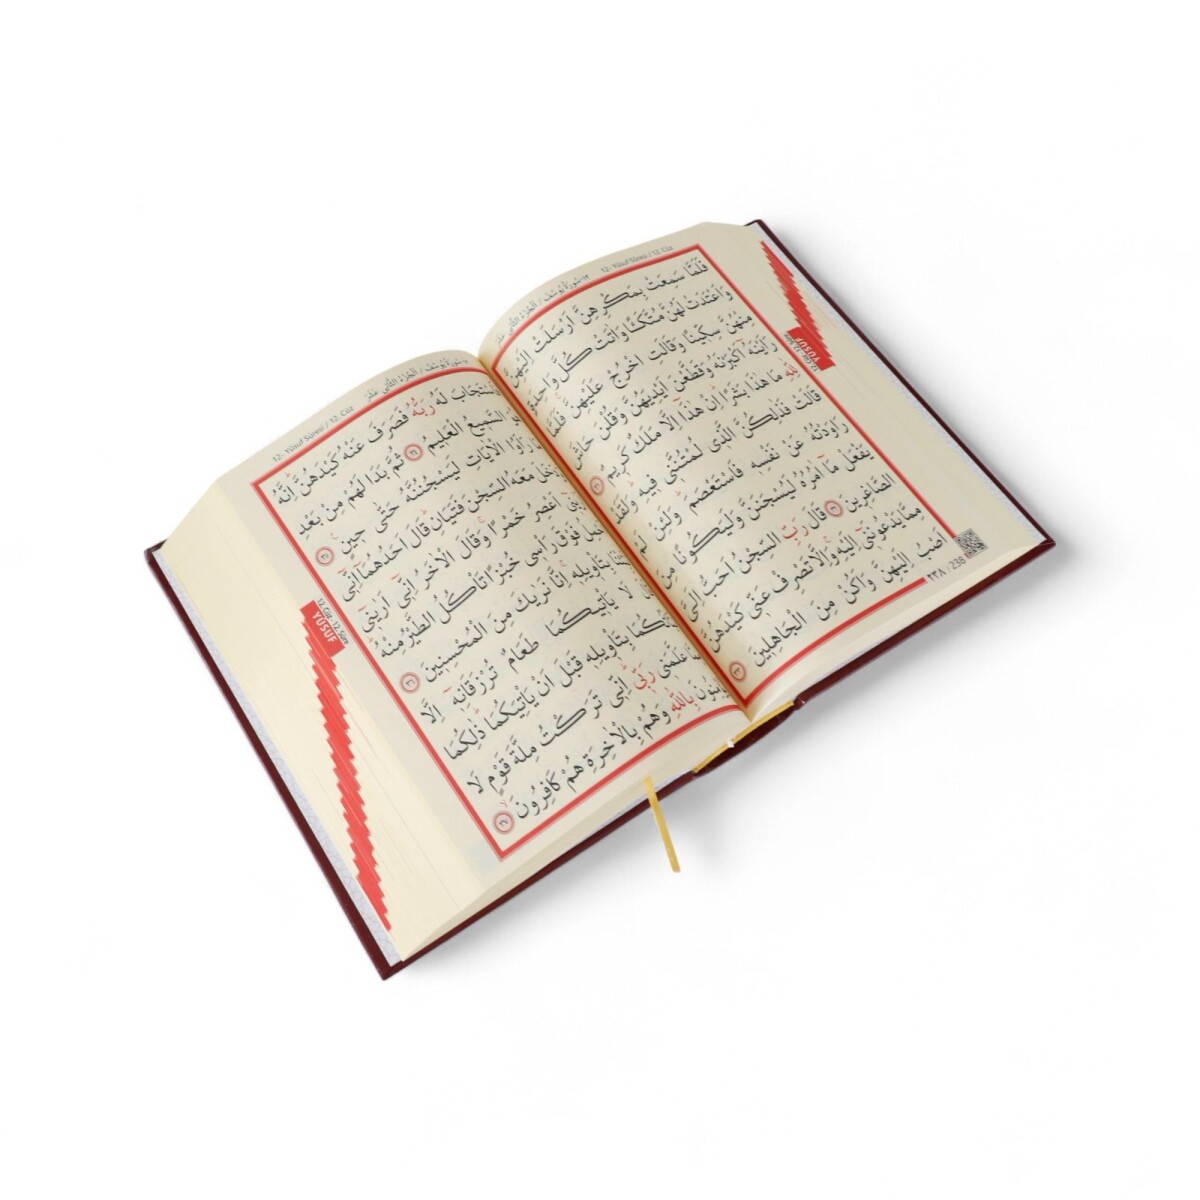 ١٢-سُورَةُ يُوسُفَ / اَلْجُزْءُ الثَّانِي عَشَرَ 12- Yûsuf Sûresi / 12. Cüz
فَلَمَّا سَمِعَتْ بِمَكْرِهِنَّ اَرْسَلَتْ اِلَيْهِنَّ
وَاَعْتَدَتْ لَهُنَّ مُتَّكَـًٔا وَاٰتَتْ كُلَّ وَاحِدَةٍ
مِنْهُنَّ سِكّ۪ينًا وَقَالَتِ اخْرُجْ عَلَيْهِنَّۚ فَلَمَّا
رَاَيْنَهُٓ اَكْبَرْنَهُ وَقَطَّعْنَ اَيْدِيَهُنَّ وَقُلْنَ حَاشَ
لِلّٰهِ مَا هٰذَا بَشَرًاۜ اِنْ هٰذَٓا اِلَّا مَلَكٌ كَر۪يمٌ ٣١
قَالَتْ فَذٰلِكُنَّ الَّذ۪ي لُمْتُنَّن۪ي ف۪يهِۜ وَلَقَدْ
رَاوَدْتُهُ عَنْ نَفْسِه۪ فَاسْتَعْصَمَۜ وَلَئِنْ لَمْ
يَفْعَلْ مَٓا اٰمُرُهُ لَيُسْجَنَنَّ وَلَيَكُونًا مِنَ
الصَّاغِر۪ينَ ٣٢ قَالَ رَبِّ السِّجْنُ اَحَبُّ اِلَيَّ
مِمَّا يَدْعُونَن۪ٓي اِلَيْهِۚ وَاِلَّا تَصْرِفْ عَنّ۪ي كَيْدَهُنَّ
اَصْبُ اِلَيْهِنَّ وَاَكُنْ مِنَ الْجَاهِل۪ينَ ٣٣
٢٣٨ / 238
12.Cüz .12.Sûre
YÛSUF
12- Yûsuf Sûresi / 12. Cüz ١٢-سُورَةُ يُوسُفَ / اَلْجُزْءُ الثَّانِي عَشَرَ
لَهُ رَبُّهُ فَصَرَفَ عَنْهُ كَيْدَهُنَّۜ اِنَّهُ
السَّم۪يعُ الْعَل۪يمُ ٣٤ ثُمَّ بَدَا لَهُمْ مِنْ بَعْدِ
الْاٰيَاتِ لَيَسْجُنُنَّهُ حَتّٰى ح۪ينٍ ٣٥
مَعَهُ السِّجْنَ فَتَيَانِۜ قَالَ اَحَدُهُمَٓا اِنّ۪ٓي
اَعْصِرُ خَمْرًاۚ وَقَالَ الْاٰخَرُ اِنّ۪ٓي اَرٰين۪ٓي
فَوْقَ رَأْس۪ي خُبْزًا تَأْكُلُ الطَّيْرُ مِنْهُۜ
بِتَأْو۪يلِه۪ۚ اِنَّا نَرٰيكَ مِنَ الْمُحْسِن۪ينَ ٣٦
لَا يَأْت۪يكُمَا طَعَامٌ تُرْزَقَانِه۪ٓ اِلَّا
بِتَأْو۪يلِه۪ قَبْلَ اَنْ يَأْتِيَكُمَاۜ ذٰلِكُمَا
عَلَّمَن۪ي رَبّ۪يۜ اِنّ۪ي تَرَكْتُ مِلَّةَ قَوْمٍ لَا
بِاللّٰهِ وَهُمْ بِالْاٰخِرَةِ هُمْ كَافِرُونَ ٣٧
12.Cüz .12.Sûre
YÛSUF